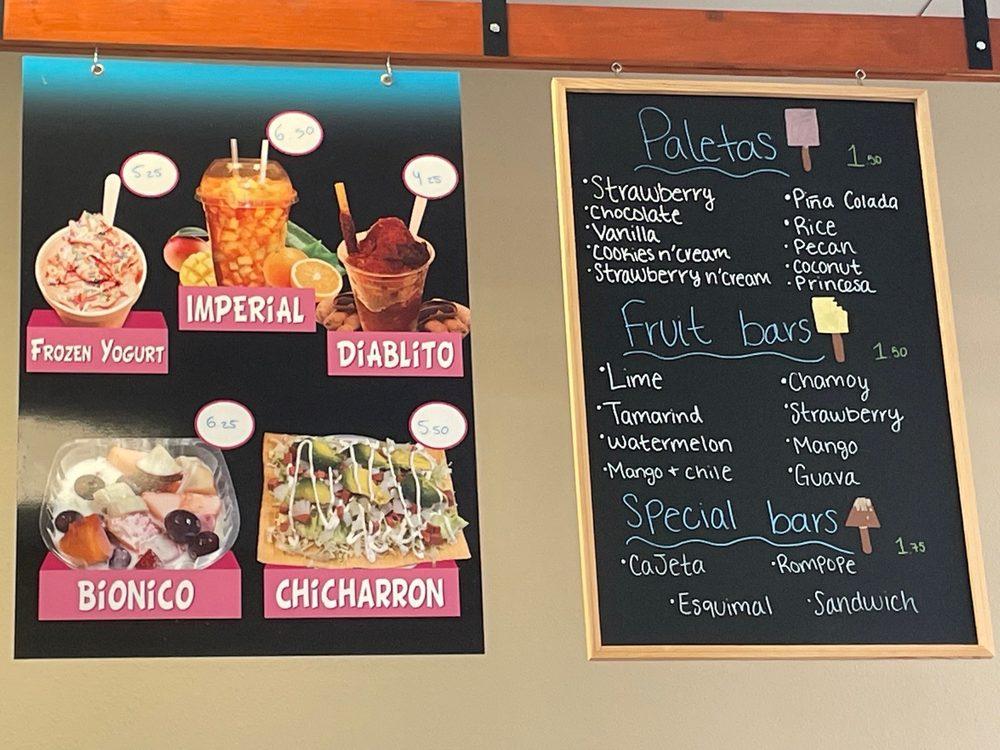 5.25
6.50
4.25
FROZEN YOGURT
IMPERIAL
DIABLITO
6.25
5.50
BIONICO
CHICHARRON
Paletas 1.50
·Strawberry
·Chocolate
·Vanilla
·Cookies n'cream
·Strawberry n'cream
·Piña Colada
·Rice
·Pecan
·Coconut
·Princesa
Fruit bars 1.50
·Lime
·Tamarind
·Watermelon
·Mango + chile
·Chamoy
·Strawberry
·Mango
·Guava
Special bars 1.75
·Cajeta ·Rompope
·Esquimal ·Sandwich